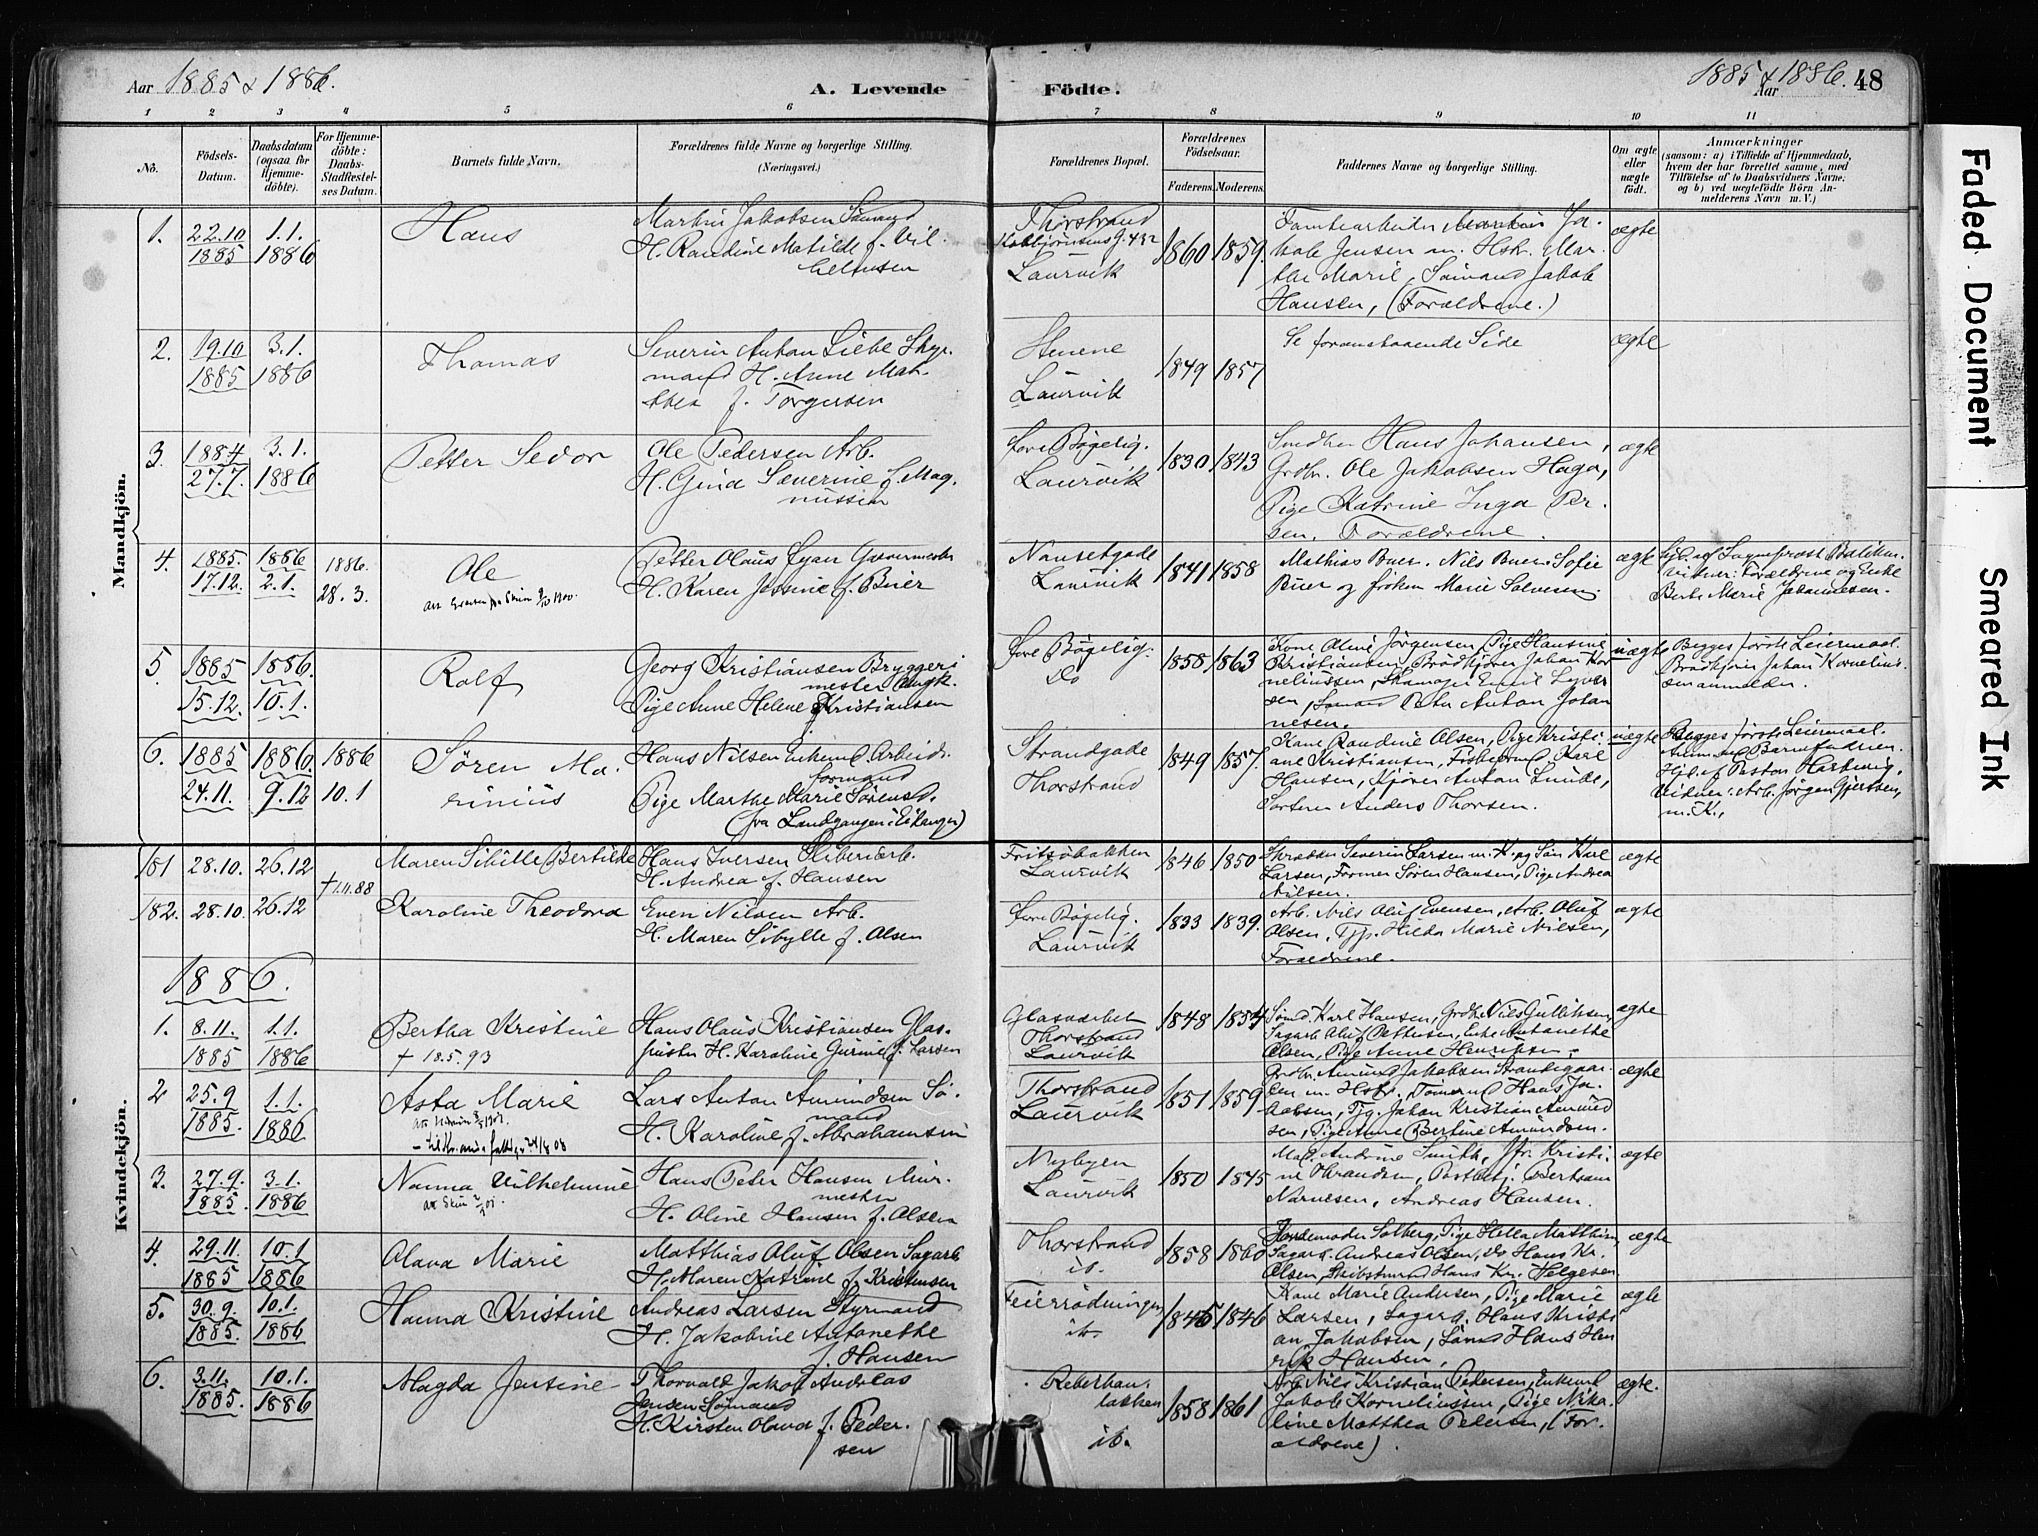 Aar 1885 & 1886.
A. Levende
Födte.
1885 & 1886.
Aar
48
1 2 3 4 5 6 7 8 9 10 11
No.
Födsels-
Datum.
Daabsdatum
(ogsaa for
Hjemme-
döbte).
For Hjemme-
döbte:
Daabs-
Stadfæstel-
ses Datum.
Barnets fulde Navn.
Forældrenes fulde Navne og borgerlige Stilling.
(Næringsvei.)
Forældrenes Bopæl.
Forældrenes
Födselsaar.
Faderens. Moderens.
Faddernes Navne og borgerlige Stilling.
Om ægte
eller
uægte
födt.
Anmærkninger
(saasom: a) i Tilfælde af Hjemmedaab,
hvem der har forrettet samme, med
Tilföielse af to Daabsvidners Navne;
og b) ved uægtefödte Börn An-
melderens Navn m. V.)
Mandkjön.
1. 22.10 1885 1.1. 1886
Hans
Martin Jakobsen Sömand
H. Randine Matilde f. Vil-
helmsen
Thorstrand
Laurvik
1860 1859.
Jensen m. Hstr. Mar-
the Marie, Sömand Jakob
Hansen, (Forældrene.)
ægte
2. 19.10 1885 3.1. 1886
Thomas
Severin Anton Liebe Styr-
mand H. Anne Mat-
thea f. Torgersen
Stenene
Laurvik
1849 1857
Se foranstaaende Side
ægte
3. 1884 27.7. 3.1. 1886
Petter Sedor
Ole Pedersen Arb.
H. Gina Severine f. Mag-
nussen
Bøgelig.
Laurvik
1830 1843
Hans Johansen,
Grdbr. Ole Jakobsen Haga,
Pige Katrine Inga Per-
sen, Forældrene.
ægte
4. 1885. 17.12. 1886 2.1. 1886. 28.3.
Ole
Petter Olaus
H. Karen Jessine f. Buer
Nansetgade
Laurvik
1841 1858
Mathias Buer. Nils Buer. Sofie
Buer og fröken Marie
ægte
Forældrene og Enke
Berte Marie Johannesen.
5. 1885 15.12. 1886. 10.1.
Rolf
Georg Kristiansen Bryggeri
mester
Pige Anne Helene Kristiansen
Bøgelig.
Do
1858 1863
Kone Oline Jörgensen, Pige Hansine
Kristiansen, Brödkjörer Johan Kor
neliussen, Skomager Emil
sen, Sömand Peter Anton Johan
nesen.
uægte
Begges förste Leiermaal
Brödkjörer Johan Kornelius-
sen anmelder.
6. 1885 24.11. 1886. 9.12 1886 10.1
Sören Ma-
rinius
Hans Nilsen Enkemd Arbeids-
formand
Pige Marthe Marie Sörensd.
(fra Landgangen i Eidanger)
Strandgade
Thorstrand
1849 1857.
Kone Randine Olsen, Pige Kristi-
ane Kristiansen, Karl
Hansen, Kjörer Anton Lunde,
Anders Thorsen.
uægte
Begges förste Leiermaal.
Barnefaderen.
Hjd. af Pastor
Vidner: Arb. Jörgen Gjertsen,
m. K.,
Kvindekjön.
181 28.10. 26.12
Maren Sibille Bertilde
Hans Iversen
H. Andrea f. Hansen
Fritsöbakken
Laurvik
1846 1850
Skrædder Severin Larsen m. H. og Sön Karl
Larsen, Former Sören Hansen, Pige Andrea
Nilsen.
ægte
182. 28.10. 26.12 † 1.11.88
Karoline Theodora
Even Nilsen Arb.
H. Maren Sibylle f. Olsen
Bøgelig.
Laurvik
1833 1839.
Arb. Nils Oluf Evensen, Arb. Oluf
Olsen, Tjp. Hilda Marie Nilsen,
Forældrene.
ægte
1886.
1. 8.11. 1885 1.1. 1886
Bertha Kristine
† 18.5.93
Hans Olaus Kristiansen Glas-
puster H. Karoline Gurine f. Larsen
Glasværket
Thorstrand
Laurvik
1848 1854
Sömd. Karl Hansen, Grdbr. Nils Gulliksen,
Sagarb. Oluf Pettersen, Enke Antonette
Olsen, Pige Anne Henriksen.
ægte
2 25.9 1885. 1.1. 1886
Asta Marie
Lars Anton Amundsen Sö-
mand
H. Karoline f. Abrahamsen
Thorstrand
Laurvik
1851 1859
Grdbr. Amund Jakobsen
len m. Hstr., Tömmermd Hans Ja-
cobsen, Tjg. Johan Kristian Amund
sen, Pige Anne Bertine Amundsen.
ægte
3. 27.9. 1885. 3.1. 1886
Nanna Vilhelmine
Hans Peter Hansen Mur-
mester
H. Oline Hansen f. Olsen
Nybyen
Laurvik
1850 1845
Mad. Andrine Smith, Jfr. Kristi-
ne Thrandsen, Bertram
Nanesen, Andreas Hansen.
ægte
4. 29.11. 1885 10.1 1886
Olava Marie
Matthias Oluf Olsen Sagarb.
H. Maren Katrine f. Kristensen
Thorstrand
ib.
1858 1860
Jordemoder Solberg, Pige Helle Matthisen,
Sagarb. Andreas Olsen, do Hans Kr.
Olsen, Skibstmmd Hans Kr. Helgesen
ægte
5. 30.9. 1885. 10.1. 1886
Hanna Kristine
Andreas Larsen Styrmand
H. Jakobine Antonette
f. Hansen
Feierrödningen
ib.
1845 1846
Kone Marie Andersen, Pige Marie
Larsen, Sagarb. Hans Kristi-
an Jakobsen, Sömd Hans Hen
rik Hansen.
ægte
6. 3.11. 1885. 10.1. 1886
Magda Jensine
Thorvald Jakob Andreas
Jensen Sömand
H. Kirsten Olava f. Peder-
sen
Reberban-
bakken
ib.
1858 1861
Arb. Nils Kristian Pedersen, Enkemd
Jakob Korneliussen, Pige Nika-
line Matthea Pedersen, (For-
ældrene).
ægte.
Faded Document
Smeared Ink